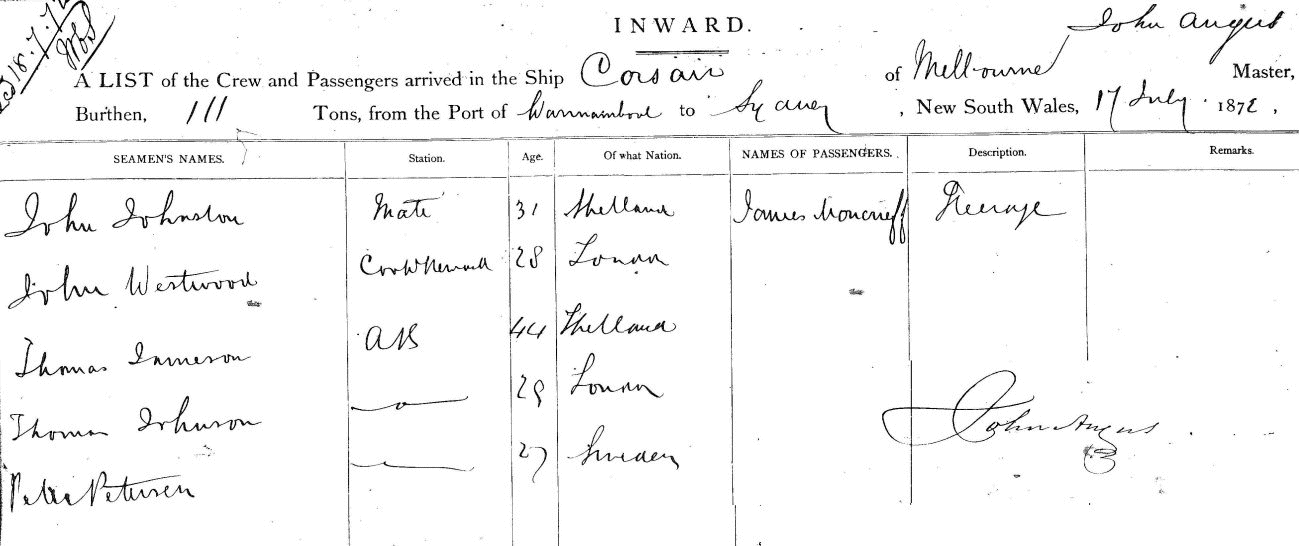 18.7.72
INWARD.
John Angus
A LIST of the Crew and Passengers arrived in the Ship Corsair of Melbourne Master,
Burthen, 111 Tons, from the Port of Warrnambool to Sydney, New South Wales, 17 July 1872,
SEAMEN'S NAMES. Station. Age. Of what Nation. NAMES OF PASSENGERS. Description. Remarks.
John Johnston Mate 31 Shetland James Moncrieff Steerage
John Westwood Cook & Steward 28 London
Thomas Jameson AB 44 Shetland
Thomas Johnson —o— 29 London
Peter Petersen — 27 Sweden
John Angus